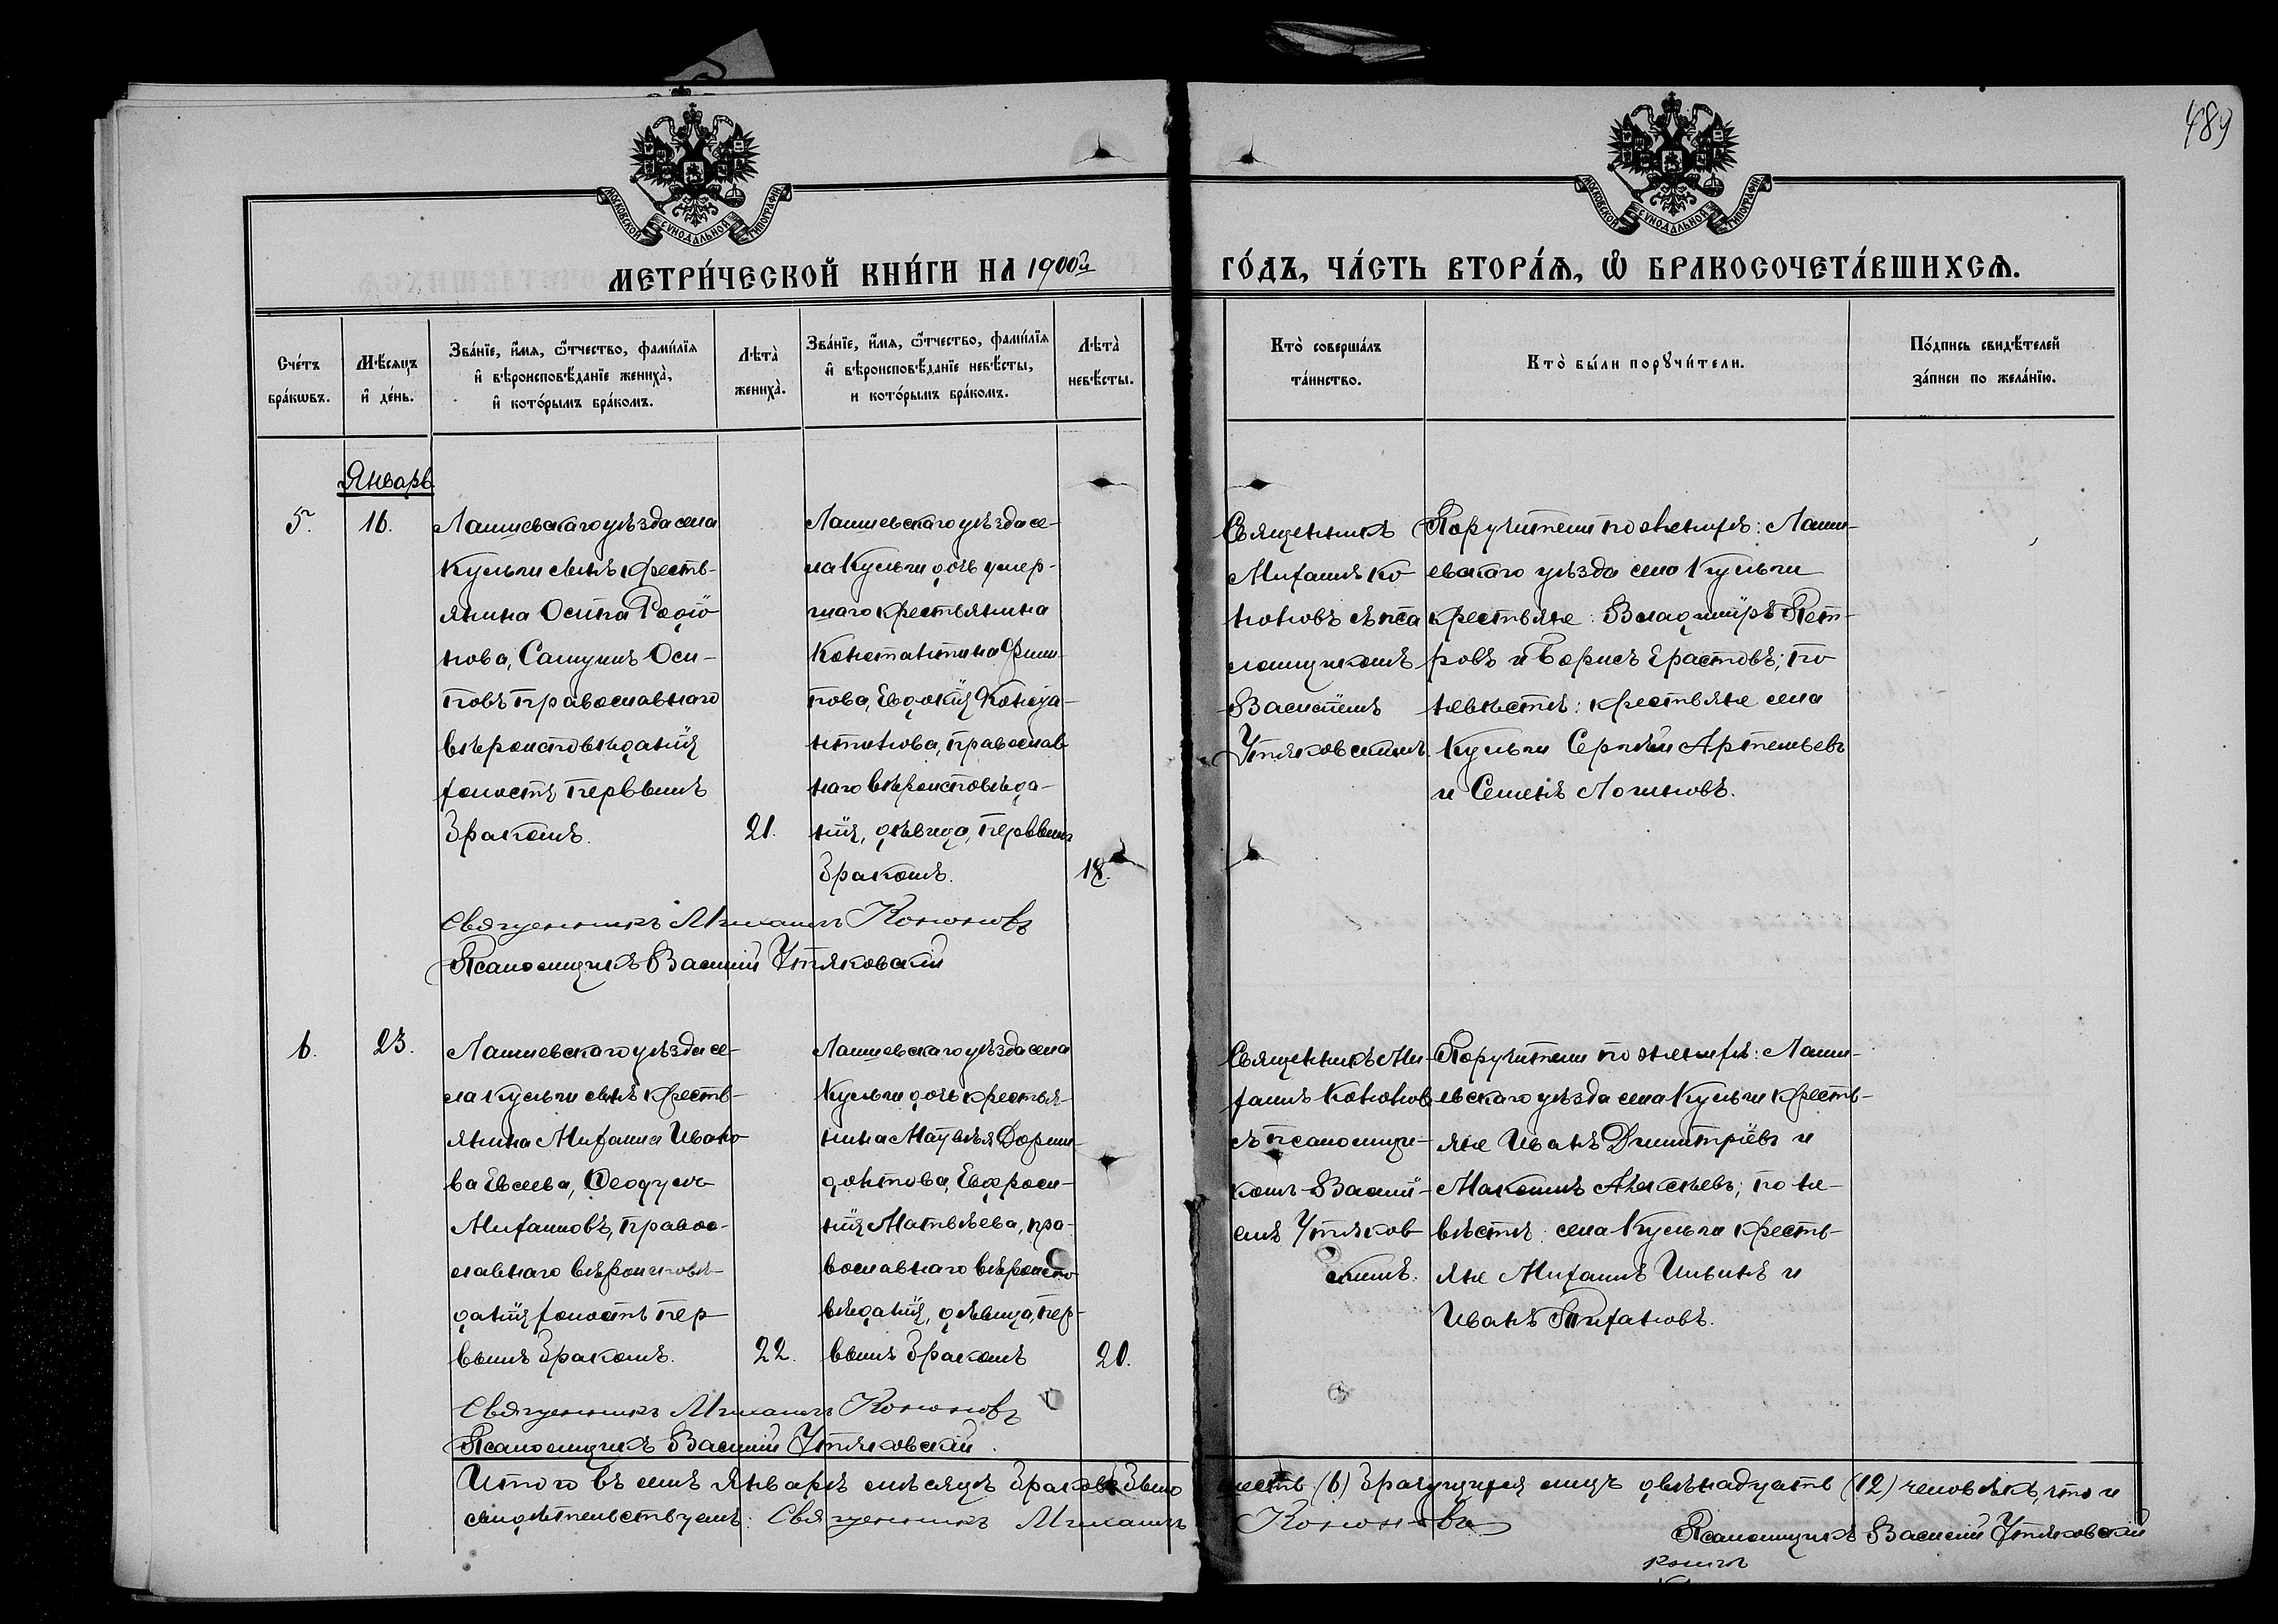 489
МОСКОВСКОЙ СѴНОДАЛЬНОЙ ТИПОГРАФІИ
МОСКОВСКОЙ СѴНОДАЛЬНОЙ ТИПОГРАФІИ
МЕТРИ́ЧЕСКОЙ КНИ́ГИ НА 1900й
ГО́ДЪ, ЧА́СТЬ ВТОРА́Ѧ, Ѡ БРАКОСОЧЕТА́ВШИХСѦ.
Сче́тъ
бра́кѡвъ.
Мѣ́сяцъ
и҆ де́нь.
Зва́нїе, и҆́мя, ѻ҆́тчество, фами́лїя
и҆ вѣроисповѣ́данїе жениха̀,
и҆ кото́рымъ бра́комъ.
Лѣта̀
жениха̀.
Зва́нїе, и҆́мя, ѻ҆́тчество, фами́лїя
и҆ вѣроисповѣ́данїе невѣ́сты,
и кото́рымъ бра́комъ.
Лѣта̀
невѣ́сты.
Кто̀ соверша́лъ
та́инство.
Кто̀ бы́ли порꙋчи́тели.
По́дпись свидѣ́телей
за́писи по жела́нїю.
Январь
5.
16.
Лаишевскаго уѣзда села
Кульги сынъ кресть-
янина Осипа Родіо
нова, Самуилъ Оси-
повъ православнаго
вѣроисповѣданія
холостъ первымъ
бракомъ.
21.
Лаишевскаго уѣзда се-
ла Кульги дочь умер-
шаго крестьянина
Константина Филип-
пова, Евдокія Конста-
нтинова, православ
наго вѣроисповѣда-
нія, дѣвица, первымъ
бракомъ.
18.
Священникъ
Михаилъ Ко
ноновъ съ пса
ломщикомъ
Василіемъ
Утяковскимъ.
Поручители по женихѣ: Лаиш-
евскаго уѣзда села Кульги
крестьяне: Владиміръ Пет-
ровъ и Борисъ Ерастовъ; по
невѣстѣ: крестьяне села
Кульги Сергѣй Артемьевъ
и Семенъ Логиновъ.
Священникъ Михаилъ Кононовъ
Псаломщикъ Василій Утяковскій
6.
23.
Лаишевскаго уѣзда се-
ла Кульги сынъ кресть-
янина Михаила Ивано
ва Евсеева, Ѳеодулъ
Михаиловъ, правос-
лавнаго вѣроисповѣ-
данія холостъ пер
вымъ бракомъ.
22.
Лаишевскаго уѣзда села
Кульги дочь крестья-
нина Матвѣя Дорми-
донтова, Евфроси-
нія Матвѣева, пра-
вославнаго вѣроиспо
вѣданія, дѣвица, пер-
вымъ бракомъ
20.
Священникъ Ми-
хаилъ Кононовъ
съ псаломщи-
комъ Василі-
емъ Утяков
скимъ.
Поручители по женихѣ: Лаиш-
евскаго уѣзда села Кульги кресть-
яне Иванъ Димитріевъ и
Максимъ Алексѣевъ; по не-
вѣстѣ: села Кульги кресть-
яне Михаилъ Ильинъ и
Иванъ Тихановъ.
Священникъ Михаилъ Кононовъ
Псаломщикъ Василій Утяковскій.
Итого въ семъ Январѣ мѣсяцѣ браковъ было шесть (6) брачущихся лицъ двѣнадцать (12) человѣкъ, что и
свидѣтельствуемъ: Священникъ Михаилъ Кононовъ
Псаломщикъ Василій Утяковскій